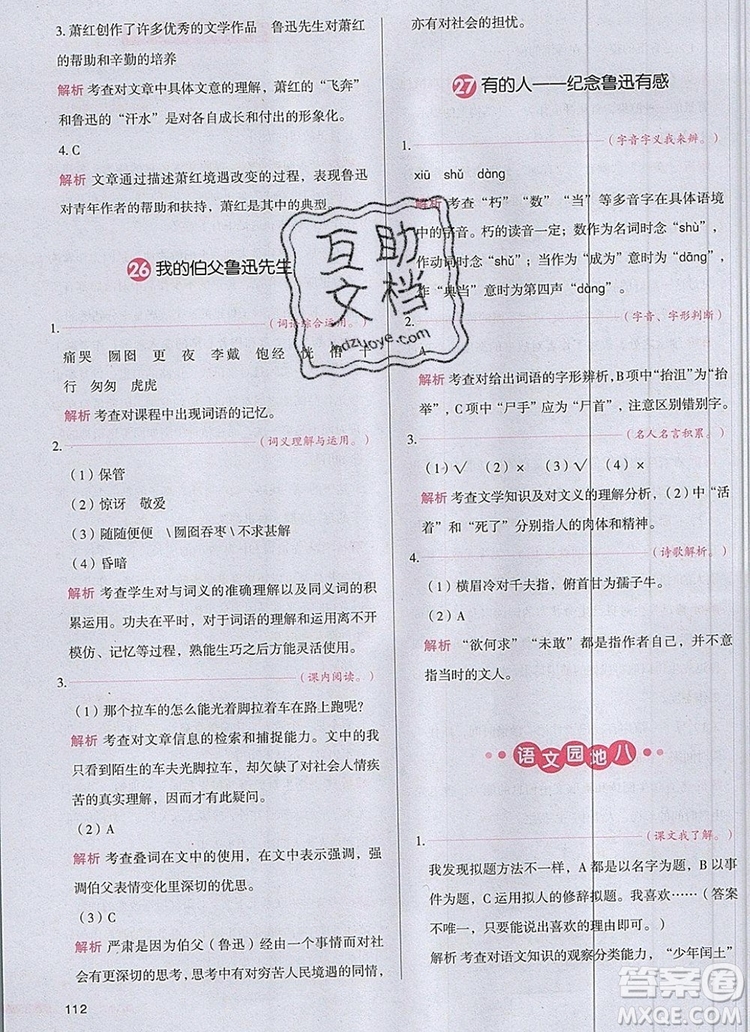 3. 萧红创作了许多优秀的文学作品　鲁迅先生对萧红
的帮助和辛勤的培养
解析 考查对文章中具体文意的理解，萧红的“飞奔”
和鲁迅的“汗水”是对各自成长和付出的形象化。
4. C
解析 文章通过描述萧红境遇改变的过程，表现鲁迅
对青年作者的帮助和扶持，萧红是其中的典型。
26 我的伯父鲁迅先生
1.
（词语综合运用。）
痛哭　囫囵　更　夜　李戴　饱经　恍
行　匆匆　虎虎
解析 考查对课程中出现词语的记忆。
2.
（词义理解与运用。）
（1）保管
（2）惊讶　敬爱
（3）随随便便　\ 囫囵吞枣 \ 不求甚解
（4）昏暗
解析 考查学生对与词义的准确理解以及同义词的积
累运用。功夫在平时，对于词语的理解和运用离不开
模仿、记忆等过程，熟能生巧之后方能灵活运用。
3.
（课内阅读。）
（1）那个拉车的怎么能光着脚拉着车在路上跑呢？
解析 考查对文章信息的检索和捕捉能力。文中的我
只看到陌生的车夫光脚拉车，却欠缺了对社会人情疾
苦的真实理解，因此才有此疑问。
（2）A
解析 考查叠词在文中的使用，在文中表示强调，强调
伯父表情变化里深切的忧思。
（3）C
解析 严肃是因为伯父（鲁迅）经由一个事情而对社
会有更深切的思考，不仅有对贫苦人民境遇的同情，
112
亦有对社会的担忧。
27 有的人——纪念鲁迅有感
1.
（字音字义我来辨。）
xiǔ　shǔ　dàng
解析 考查“朽”“数”“当”等多音字在具体语境
中的读音。朽的读音一定；数作为名词时念“shù”，
作动词时念“shǔ”；当作为动词时念“dāng”，
作“典当”意时为第四声“dàng”。
2.
（字音、字形判断）
解析 考查对给出词语的字形辨析，B项中“抬沮”为“抬
举”，C项中“尸手”应为“尸首”，注意区别。
3.
（名人名言积累。）
（1）√　（2）×　（3）√　（4）×
解析 考查文学知识及对文义的理解分析，（2）中“活
着”和“死了”分别指人的肉体和精神。
4.
（诗歌解析。）
（1）横眉冷对千夫指，俯首甘为孺子牛。
（2）A
解析 “欲何求”“未敢”都是指作者自己，并不意
指当时的文人。
语文园地八
1.
（课文我了解。）
我发现拟题方法不一样，A 是以名字为题，B 以事
件为题，C 运用拟人的修辞拟题。我喜欢……（答案
不唯一，只要写出喜欢的理由即可。）
解析 考查对语文知识的观察分类能力，“少年闰土”
互助
文档
hdzuoye.com
答案圈
MXQE.COM